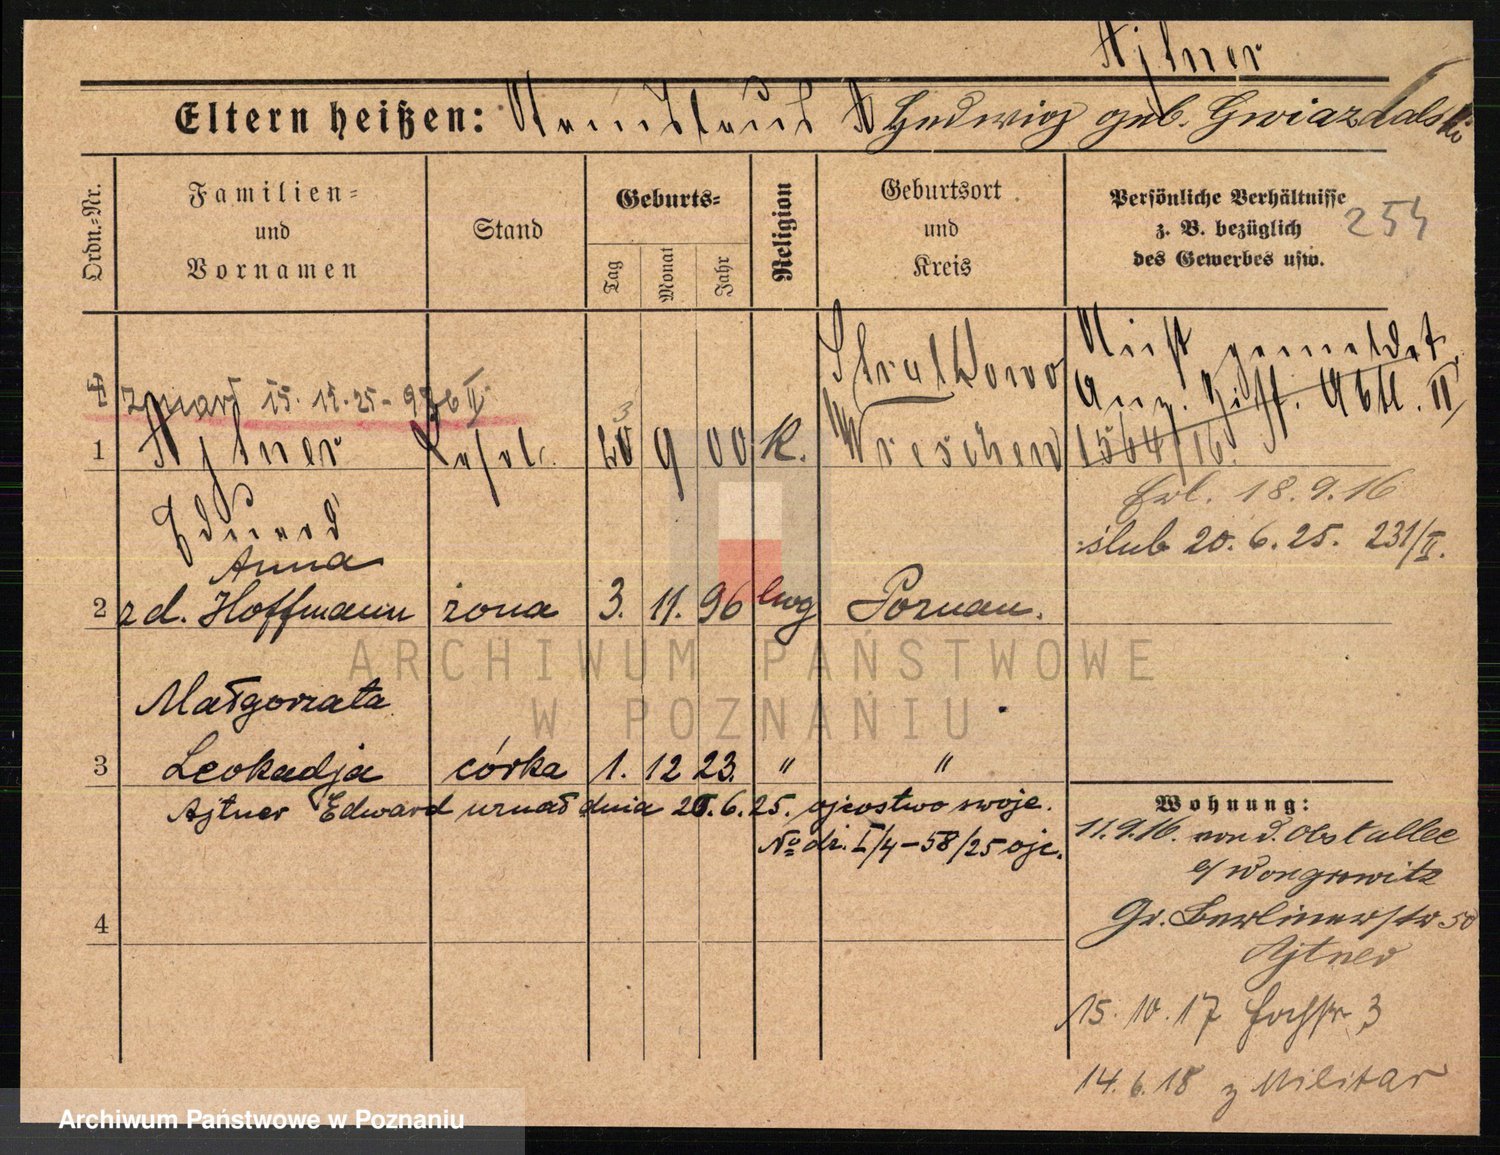 Ajtner
Eltern heißen: Hedwig geb. Gwiazdalski
Ordn.-Nr.
Familien-
und
Vornamen
Stand
Geburts-
Tag
Monat
Jahr
Religion
Geburtsort
und
Kreis
Persönliche Verhältnisse
z. B. bezüglich
des Gewerbes usw.
254
zmarł 15. 12. 25 - 926 II
Stralkowo
Nicht gemeldet.
Anz. Abtl. II
1 Ajtner 9 00 K. Wreschen 1564/16.
Eduard
Erl. 18. 9. 16
ślub 20. 6. 25. 231/II.
Anna
2 zd. Hoffmann żona 3. 11. 96 ewg Poznan.
Małgorzata
3 Leokadja córka 1. 12 23. " "
Ajtner Edward uznał dnia 6. 25. ojcostwo swoje.
No dz. I/4 - 58/25 ojc.
4
Wohnung:
11. 9. 16. von d. Obstallee
Wongrowitz
Gr. Berlinerstr 50
Ajtner
15. 10. 17 3
14. 6. 18 z Militar
ARCHIWUM PAŃSTWOWE
W POZNANIU
Archiwum Państwowe w Poznaniu